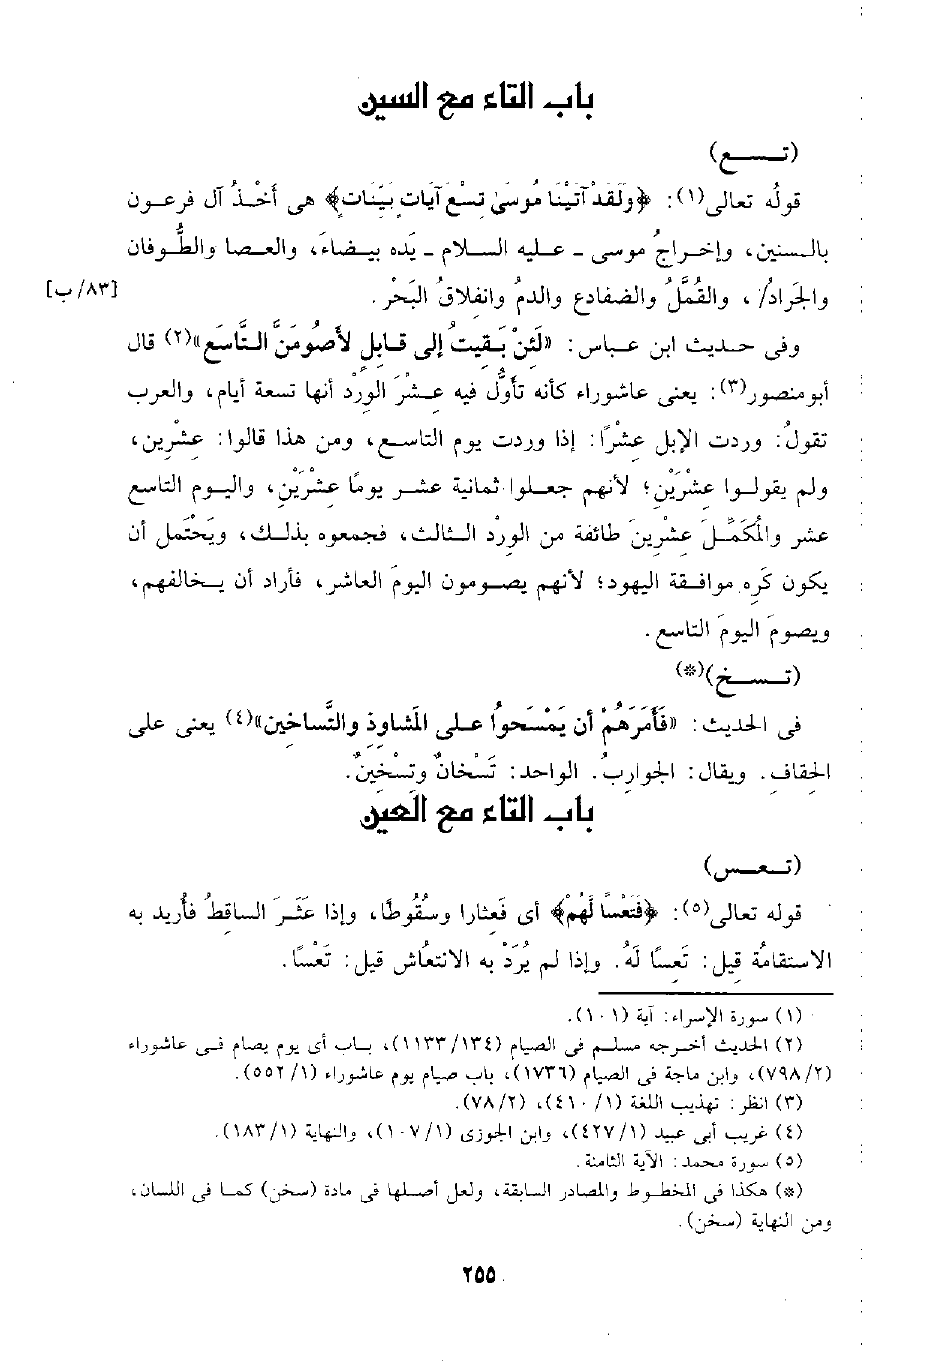 باب التاء مع السين
(تـــسـع)
قولُه تعالى(١): ﴿وَلَقَدْ آتَيْنَا مُوسَىٰ تِسْعَ آيَاتٍ بَيِّنَاتٍ﴾ هى أَخْـذُ آل فرعـون
بالـسنين، وإخـراجُ موسى ـ عـليه الـسـلام ـ يَده بيـضاءَ، والعـصا والطُّوفان
والجَرادُ/ ، والقُمَّلُ والضفادع والدمُ وانفلاقُ البَحْر. [٨٣/ ب]
وفى حـديث ابن عبـاس: «لَئِنْ بَـقيتُ إلى قـابِلٍ لأَصُومَنَّ الـتَّاسَع»(٢) قال
أبومنصور(٣): يعنى عاشوراء كأنه تأوَّل فيه عِـشْرَ الوِرْد أنها تسعة أيام، والعرب
تقولُ: وردت الإبل عِشْرًا: إذا وردت يوم التاسـع، ومن هذا قالوا: عِشْرين،
ولم يقولـوا عِشْرَيْنِ؛ لأنهم جعـلوا ثمانية عشـر يومًا عِشْرَيْنِ، واليـوم التاسع
عشر والمُكَمِّـلَ عِشْرينَ طائفة من الوِرْد الـثالث، فجمعوه بذلـك، ويَحْتَمل أن
يكون كَرِه موافـقة اليهود؛ لأنهم يصـومون اليومَ العاشر، فأراد أن يـخالفهم،
ويصومَ اليومَ التاسع.
(تـــسـخ)(*)
فى الحديث: «فَأَمَرَهُمْ أن يَمْسَحوُا عـلـى المَشاوِذِ والتَّساخين»(٤) يعنى على
الخفافِ. ويقال: الجواربُ. الواحد: تَسْخانٌ وتِسْخِينٌ.
باب التاء مع العين
(تـعـس)
قوله تعالى(٥): ﴿فَتَعْسًا لَهُمْ﴾ أى فَعثارا وسُقُوطًا، وإذا عَثَـرَ الساقِطُ فأُريد به
الاستقامُة قِيل: تَعِسًا لَهُ. وإذا لم يُرَدْ به الانتعُاش قيل: تَعْسًا.
(١) سورة الإسراء: آية (١٠١).
(٢) الحديث أخـرجه مسلـم فى الصيام (١١٣٣/١٣٤)، بـاب أى يوم يصام فـى عاشوراء
(٧٩٨/٢)، وابن ماجة فى الصيام (١٧٣٦)، باب صيام يوم عاشوراء (٥٥٢/١).
(٣) انظر: تهذيب اللغة (٤١٠/١)، (٧٨/٢).
(٤) غريب أبى عبيد (٤٢٧/١)، وابن الجوزى (١٠٧/١)، والنهاية (١٨٣/١).
(٥) سورة محمد: الآية الثامنة.
(*) هكذا فى المخطـوط والمصادر السابقة، ولعل أصـلها فى مادة (سخن) كمـا فى اللسان،
ومن النهاية (سخن).
٢٥٥